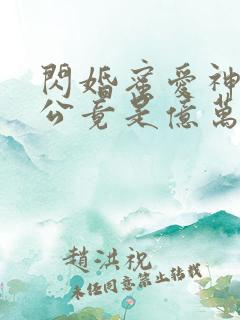 閃婚蜜愛神
公竟是億萬
趙洪祝
未任同意禁止轉載